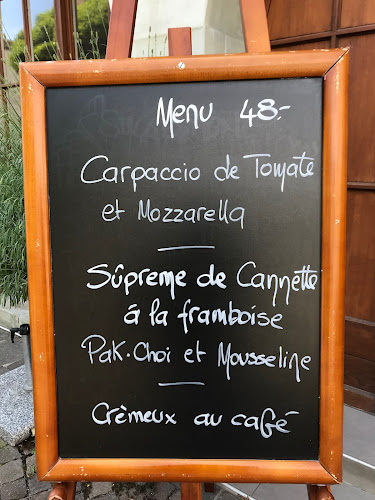 Menu 48.-
Carpaccio de Tomate
et Mozzarella
Sûpreme de Cannette
á la framboise
Pak-Choi et Mousseline
Crèmeux au café